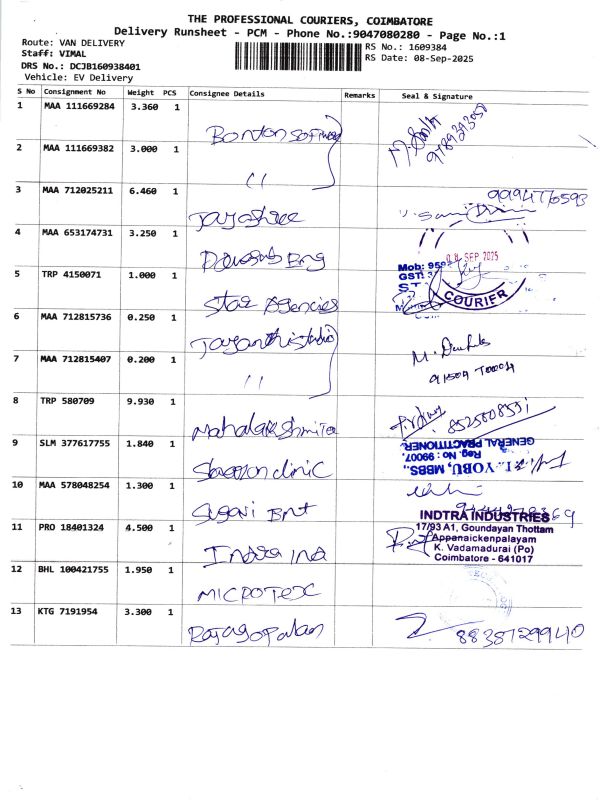 THE PROFESSIONAL COURIERS, COIMBATORE
Delivery Runsheet - PCM - Phone No.:9047080280 - Page No.:1
Route: VAN DELIVERY
RS No.: 1609384
Staff: VIMAL
RS Date: 08-Sep-2025
DRS No.: DCJB160938401
Vehicle: EV Delivery
S No Consignment No Weight PCS Consignee Details Remarks Seal & Signature
1 MAA 111669284 3.360 1 Bonton software
9789393058
2 MAA 111669382 3.000 1 ''
3 MAA 712025211 6.460 1 Jayashree
9994776593
4 MAA 653174731 3.250 1 Eng
08 SEP 2025
Mob: 959
GST: 3
ST
COURIER
5 TRP 4150071 1.000 1 Star Agencies
6 MAA 712815736 0.250 1 Jayanthi studio
7 MAA 712815407 0.200 1 ''
8 TRP 580709 9.930 1
8525808551
9 SLM 377617755 1.840 1 clinic
YOBU, MBBS.,
Reg. No : 99007.
GENERAL PRACTITIONER.
10 MAA 578048254 1.300 1 Sugavi Bnt
11 PRO 18401324 4.500 1 Indtra Ind
INDTRA INDUSTRIES
17/93 A1, Goundayan Thottam
Appanaickenpalayam
K. Vadamadurai (Po)
Coimbatore - 641017
12 BHL 100421755 1.950 1 MICROTEX
13 KTG 7191954 3.300 1 Rajagopalan
8838729940